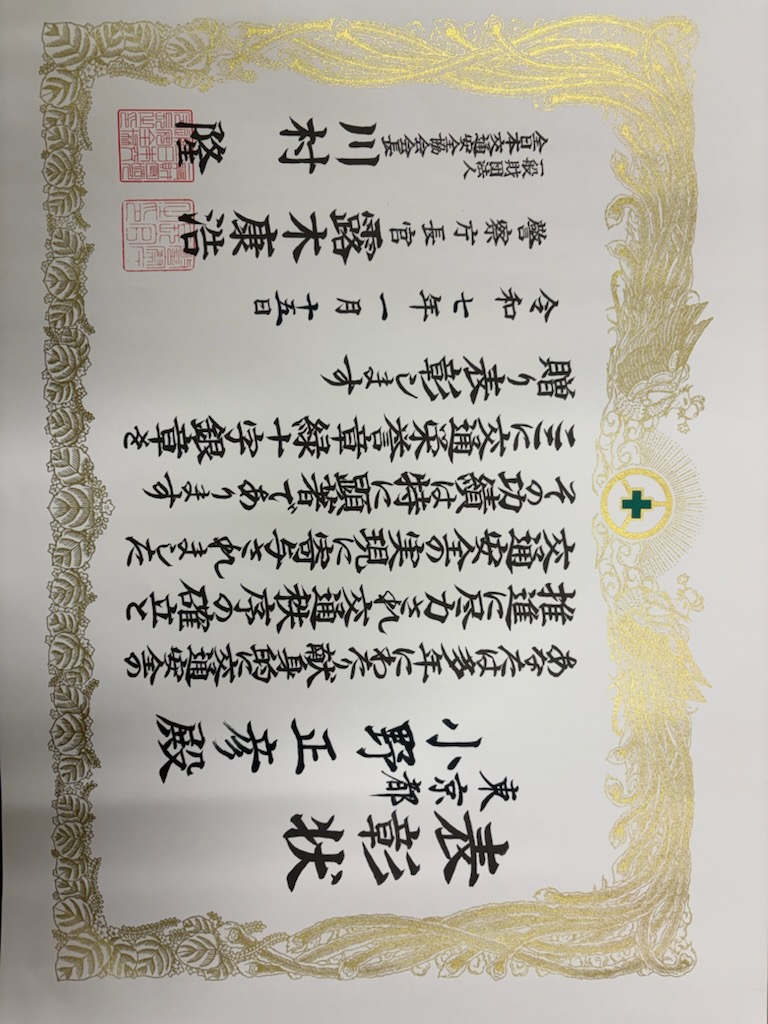 表彰状
東京都
小野正彦殿
あなたは多年にわたり献身的に交通安全の
推進に尽力され交通秩序の確立と
交通安全の実現に寄与されました
その功績は特に顕著であります
ここに交通栄誉章緑十字銀章を
贈り表彰します
令和七年一月十五日
警察庁長官 露木康浩
一般財団法人
全日本交通安全協会会長 川村隆